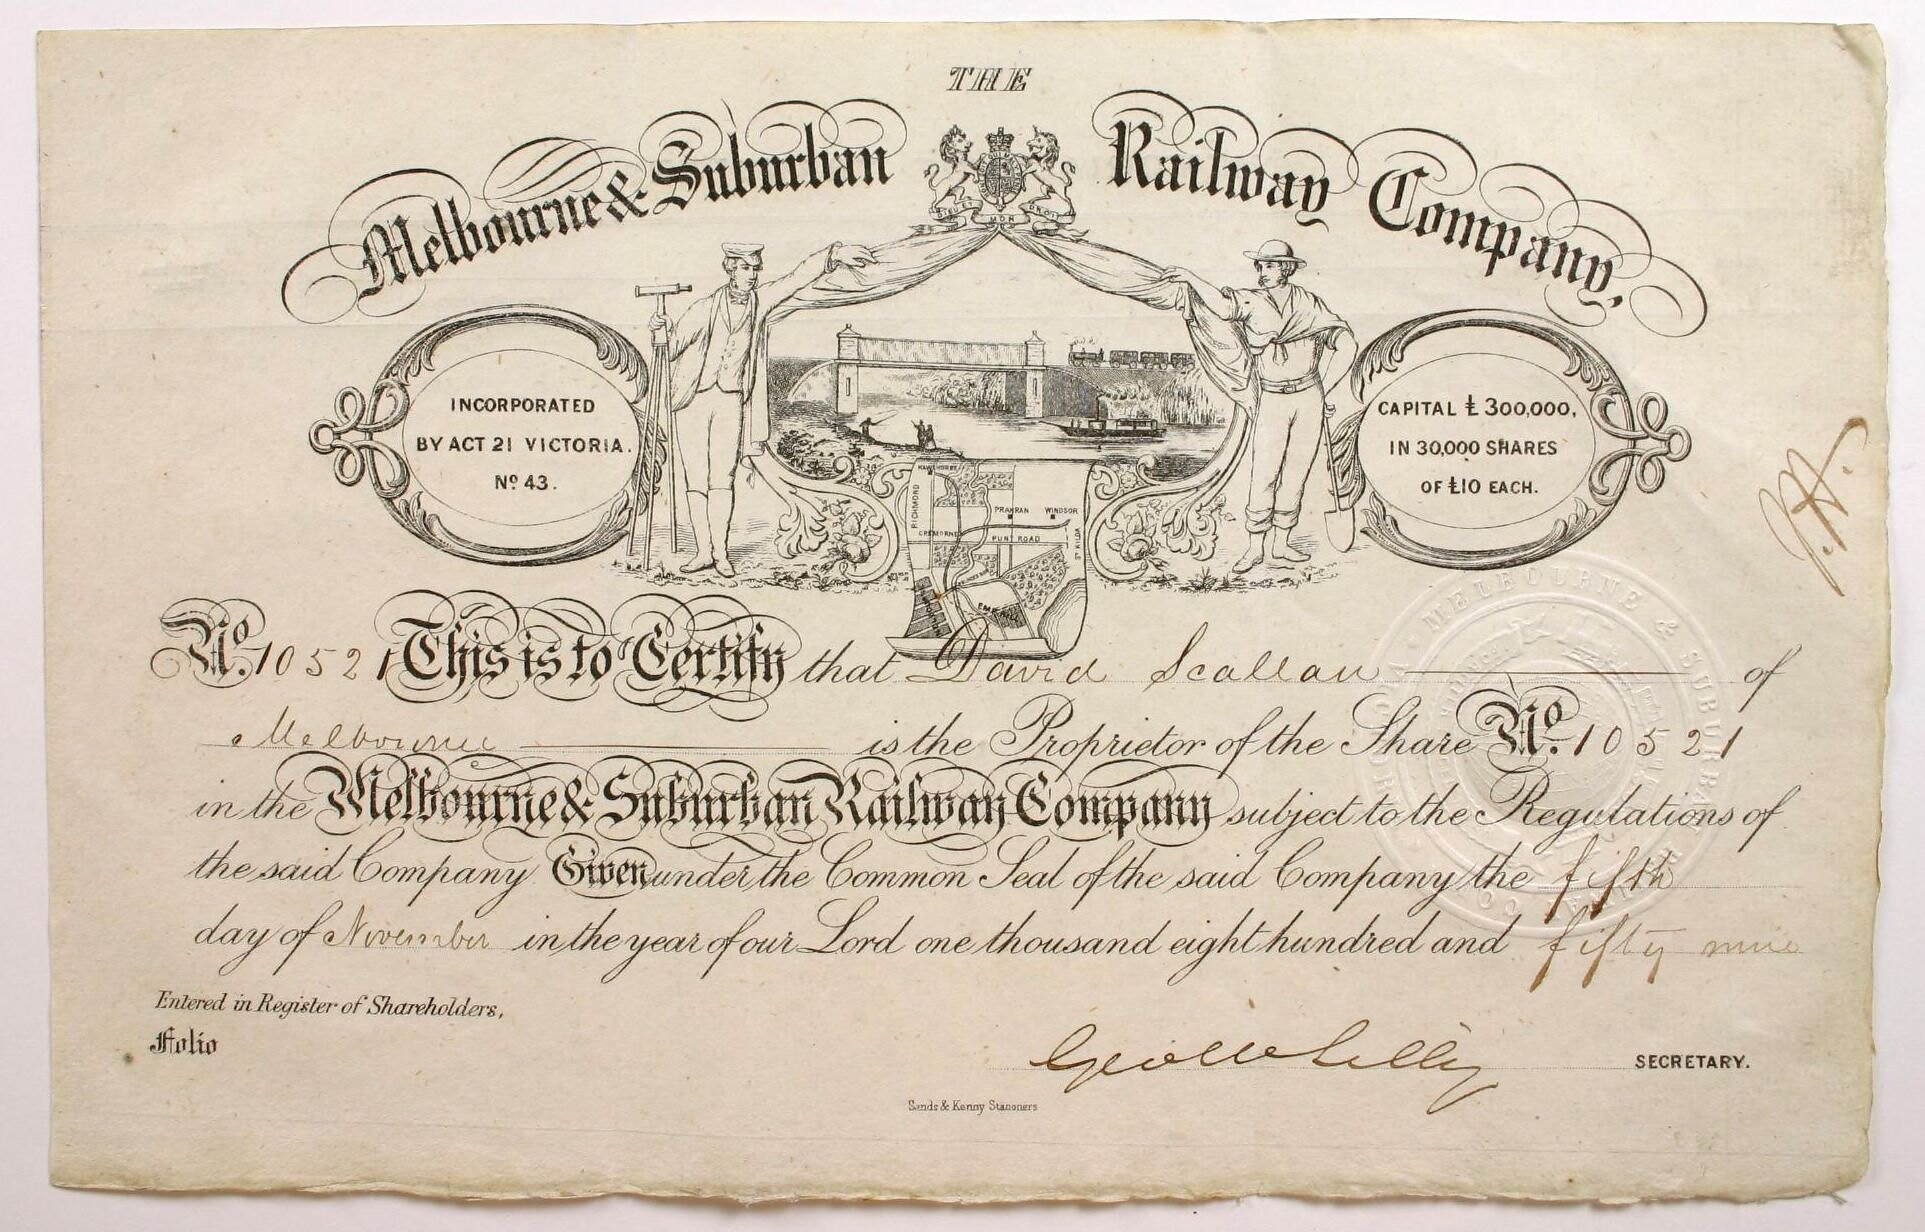 THE
Melbourne & Suburban Railway Company,
DIEU ET MON DROIT
INCORPORATED
BY ACT 21 VICTORIA.
Nº 43.
CAPITAL £ 300,000,
IN 30,000 SHARES
OF £10 EACH.
HAWTHORNE
RICHMOND
PRAHRAN WINDSOR
CREMORNE PUNT ROAD
ST KILDA
J.H.
No. 10521 This is to Certify that David Scallan of
Melbourne is the Proprietor of the Share No. 10521
in the Melbourne & Suburban Railway Company subject to the Regulations of
the said Company Given under the Common Seal of the said Company the fifth
day of November in the year of our Lord one thousand eight hundred and fifty nine
Entered in Register of Shareholders,
Folio
Geo W Lilly SECRETARY.
Sands & Kenny Stationers
MELBOURNE & SUBURBAN